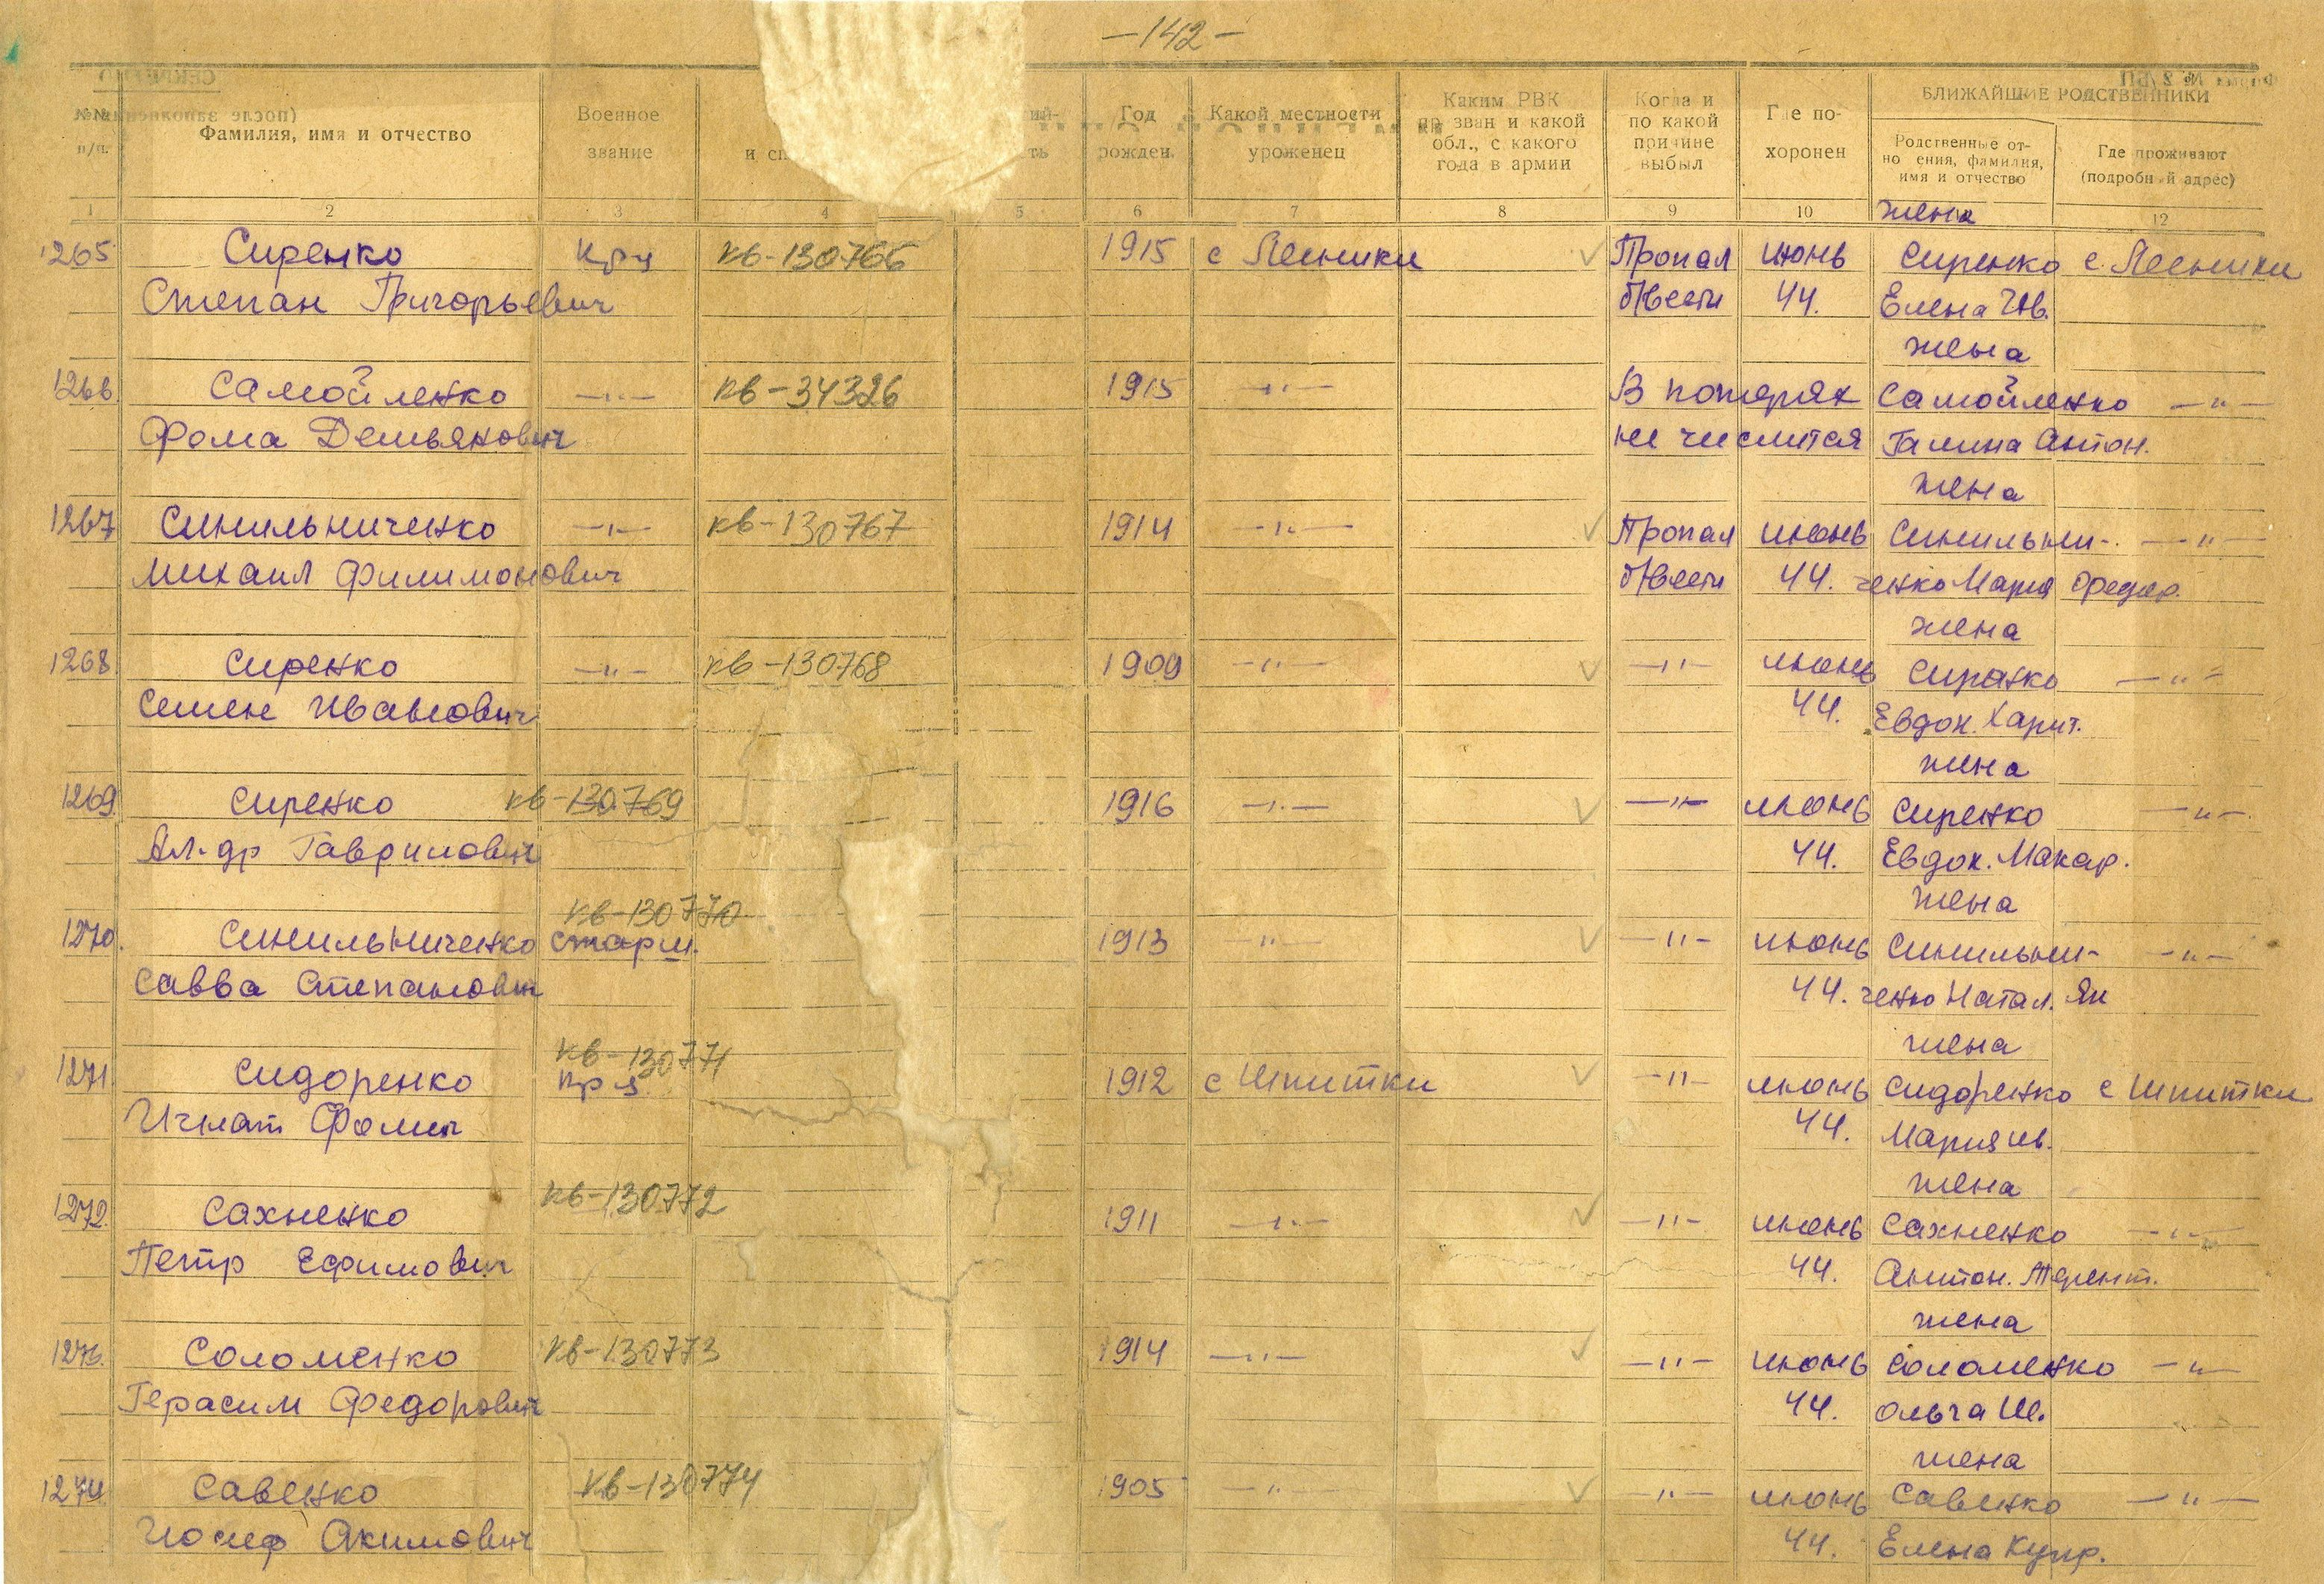 —142—
№№ п/п.
Фамилия, имя и отчество
Военное звание
и сп
Год рожден.
Какой местности уроженец
Каким РВК пр зван и какой обл., с какого года в армии
Когда и по какой причине выбыл
Где по- хоронен
БЛИЖАЙШИЕ РОДСТВЕННИКИ
Родственные от- но ения, фамилия, имя и отчество
Где проживают (подробн й адрес)
1 2 3 4 5 6 7 8 9 10 жена 12
1265 Сиренко кр-ц кв-130766 1915 с Лесники Пропал июнь Сиренко с. Лесники
Степан Григорьевич б/вести 44. Елена Ив.
жена
1266 Самойленко —"— кв-34326 1915 —"— В потерях Самойленко —"—
Фома Демьянович не числится Галина Антон.
жена
1267 Синильниченко —"— кв-130767 1914 —"— Пропал июнь Синильни- —"—
Михаил Филимонович б/вести 44. ченко Мария Федор.
жена
1268 Сиренко —"— кв-130768 1909 —"— —"— июнь Сиренко —"—
Семен Иванович 44. Евдок. Харит.
жена
1269 Сиренко кв-130769 1916 —"— —"— июнь Сиренко —"—
Ал-др Гаврилович 44. Евдок. Макар.
кв-130770 жена
1270. Синильниченко старш. 1913 —"— —"— июнь Синильни- —"—
Савва Степанович 44. ченко Натал. Як
кв-130771 жена
1271 Сидоренко кр-ц 1912 с Шпитки —"— июнь Сидоренко с Шпитки
Игнат Фомич 44. Мария Ив.
кв-130772 жена
1272. Сахненко 1911 —"— —"— июнь Сахненко —"—
Петр Ефимович 44. Антон. Терент.
жена
1273. Соломенко кв-130773 1914 —"— —"— июнь Соломенко —"—
Герасим Федорович 44. Ольга Ш.
жена
1274. Савенко кв-130774 1905 —"— —"— июнь Савенко —"—
Иосиф Акимович 44. Елена Купр.